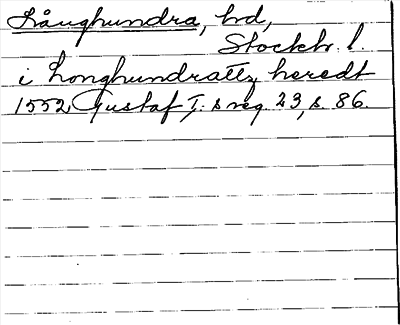 Långhundra, hd,
Stockh. l.
i Longhundratz heredt
1552 Gustaf I:s reg. 23, s. 86.